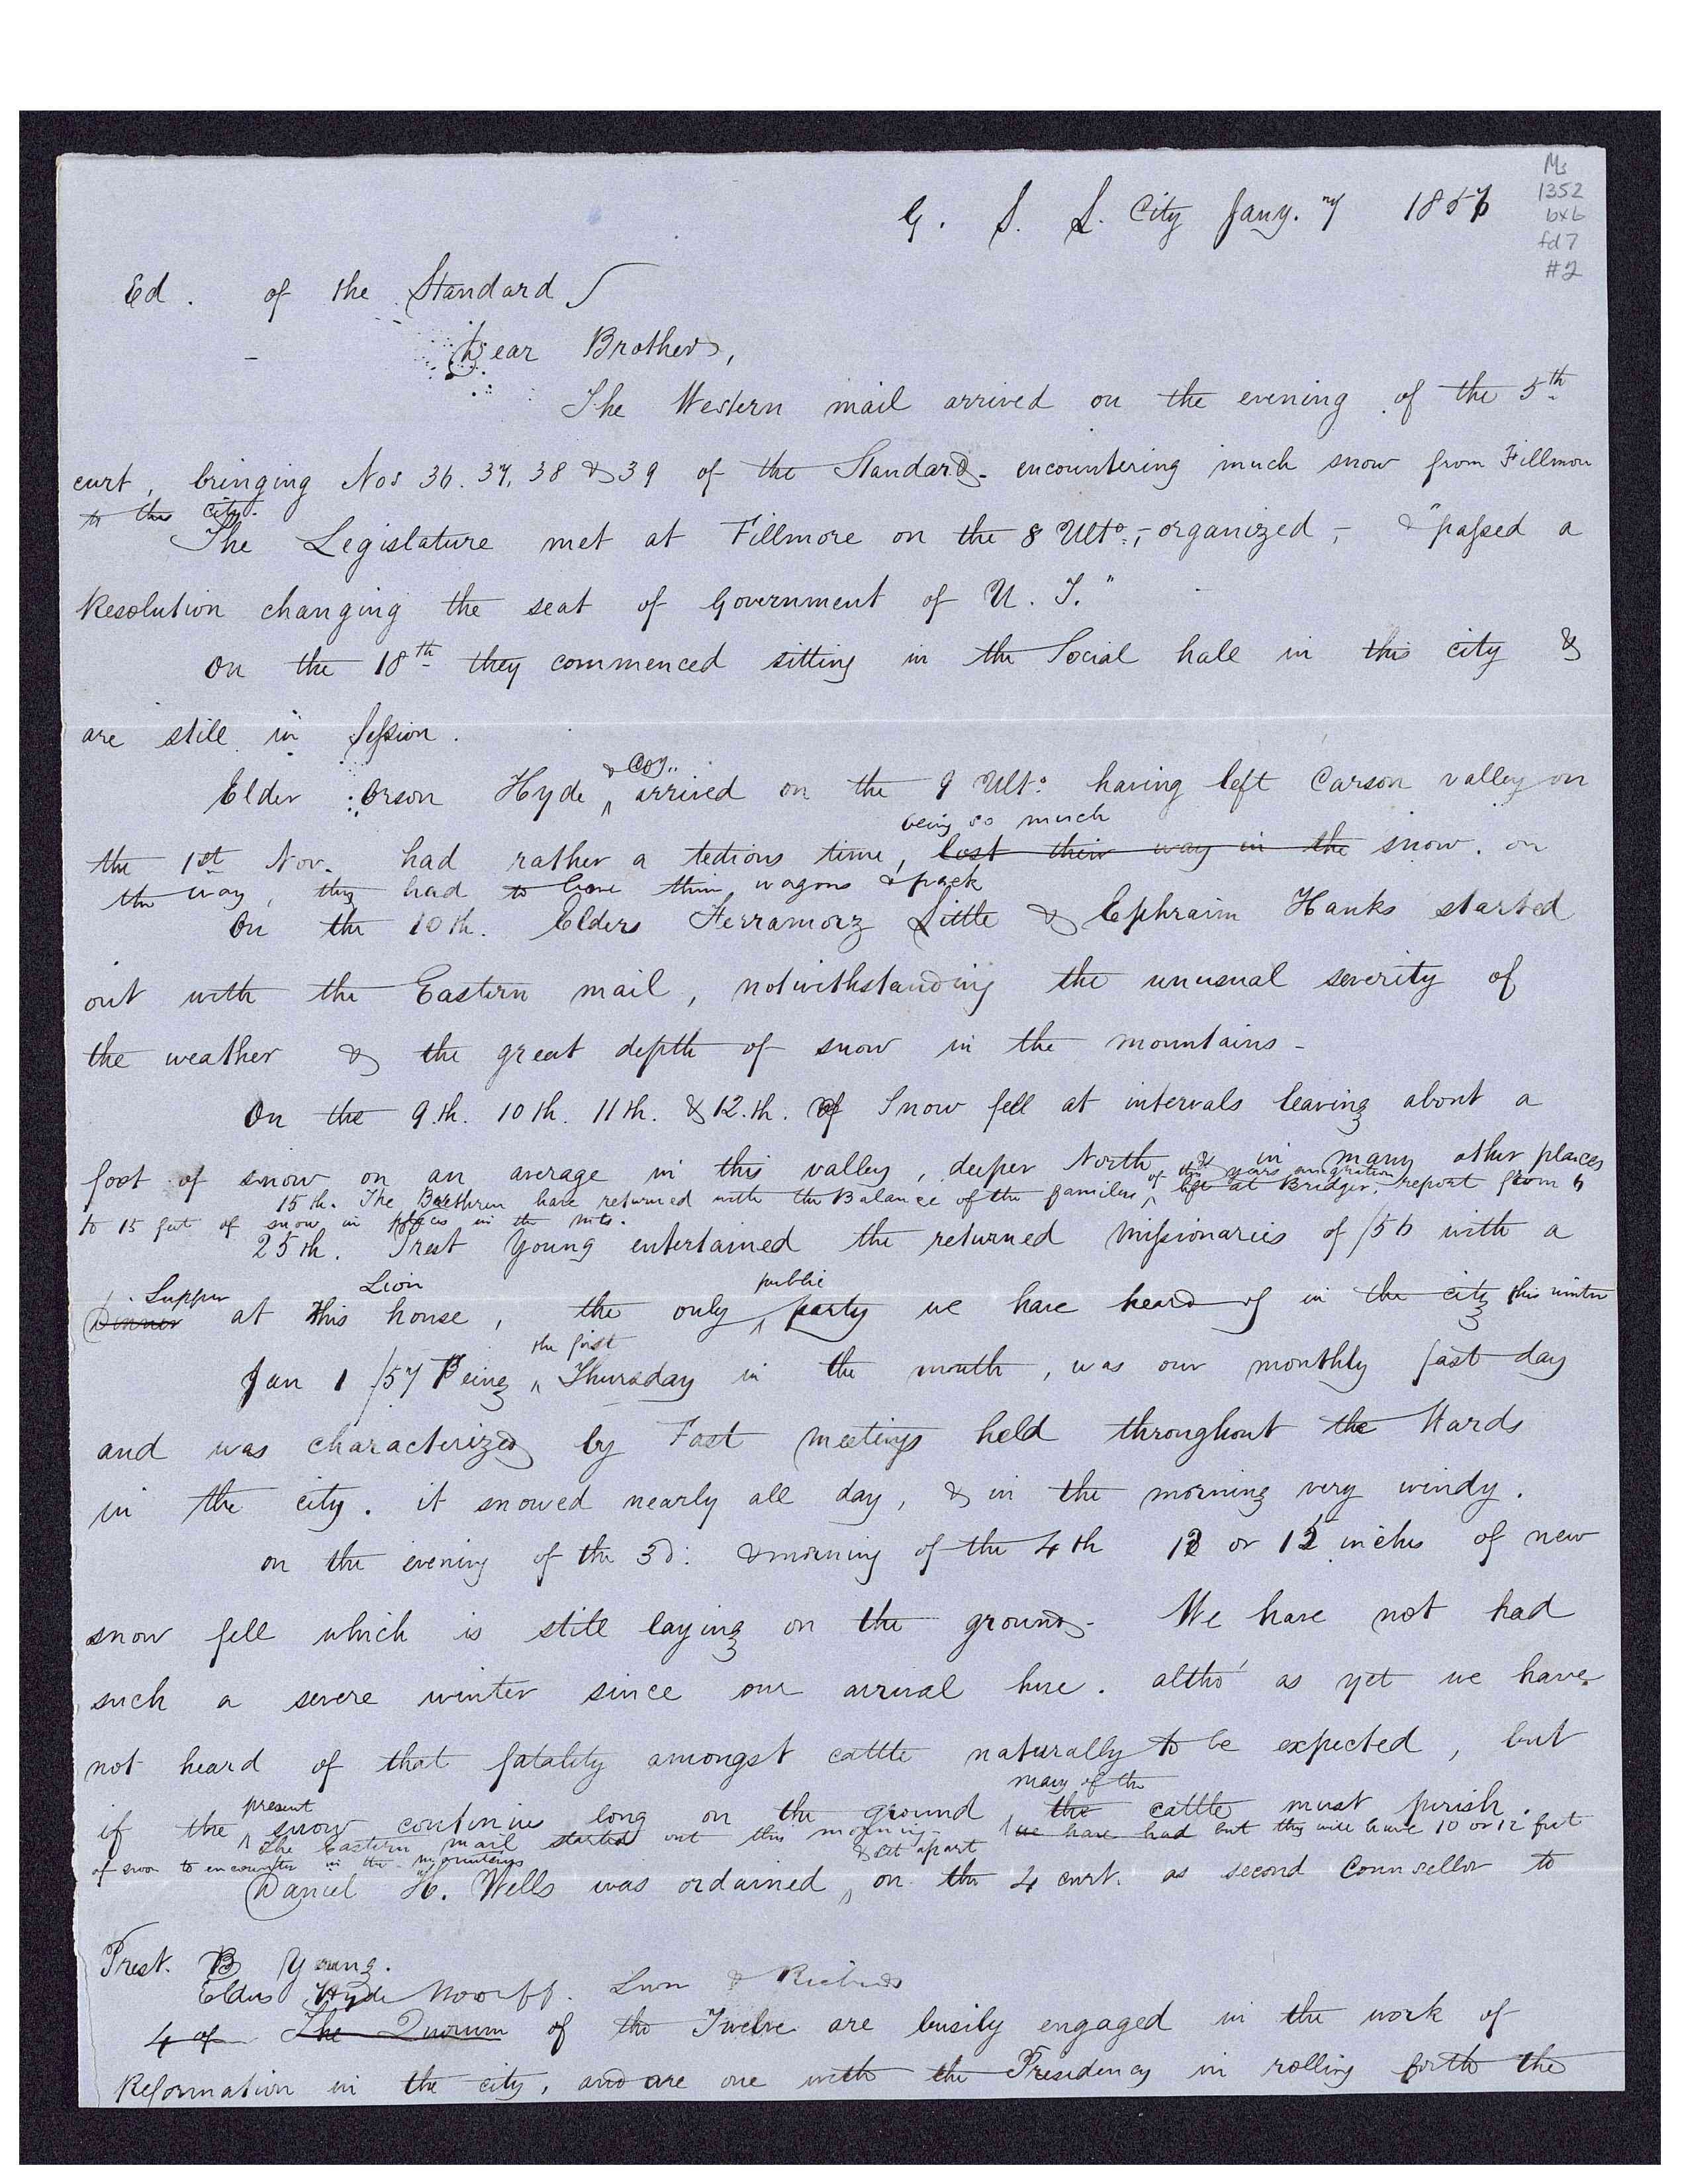 Ms
1352
bx6
fd 7
#2
G. S. L. City Jany. 7 1857
Ed. of the Standard
Dear Brother,
The Western mail arrived on the evening of the 5th
curt, bringing Nos 36. 37. 38 & 39 of the Standard - encountering much snow from Fillmore
to this city.
The Legislature met at Fillmore on the 8 Ulto. - organized - & "passed a
Resolution changing the seat of Government of U. T."
On the 18th they commenced sitting in the Social hall in this city &
are still in Session.
& Coy..
Elder Orson Hyde ^ arrived on the 9 Ulto. having left Carson valley on
being so much
the 1st Nov. had rather a tedious time, lost their way in the snow. on
the way, they had to leave their wagons & pack
On the 10th. Elders Ferramorz Little & Ephraim Hanks started
out with the Eastern mail, notwithstanding the unusual severity of
the weather & the great depth of snow in the mountains -
On the 9.th. 10th. 11th. & 12.th. of Snow fell at intervals leaving about a
foot of snow on an average in this valley, deeper North & in many other places
of this years emigration
15th. The Brethren have returned with the Balance of the families ^ left at Bridger, report from 6
to 15 feet of snow in places in the mts.
25th. Prest Young entertained the returned Missionaries of /56 with a
Supper Lion public
Dinner at this house, the only ^ party we have heard of in the city this winter
the first
Jan 1 /57 Being ^ Thursday in the month, was our monthly fast day
and was characterized by Fast meetings held throughout the Wards
in the city. it snowed nearly all day, & in the morning very windy.
on the evening of the 3d: & morning of the 4th or 12 inches of new
snow fell which is still laying on the ground - We have not had
such a severe winter since our arrival here. altho' as yet we have
not heard of that fatality amongst cattle naturally to be expected, but
present many of the
if the ^ snow continues long on the ground, the cattle must perish.
The Eastern mail started out this morning - ^ we have had but they will have 10 or 12 feet
of snow to encounter in the mountains
& set apart
Daniel H. Wells was ordained ^ on the 4 curt. as second Counsellor to
Prest. B Young.
Elders Hyde Woorff. Snow & Richards
4 of The Quorum of the Twelve are busily engaged in the work of
Reformation in the city, and are one with the Presidency in rolling forth the